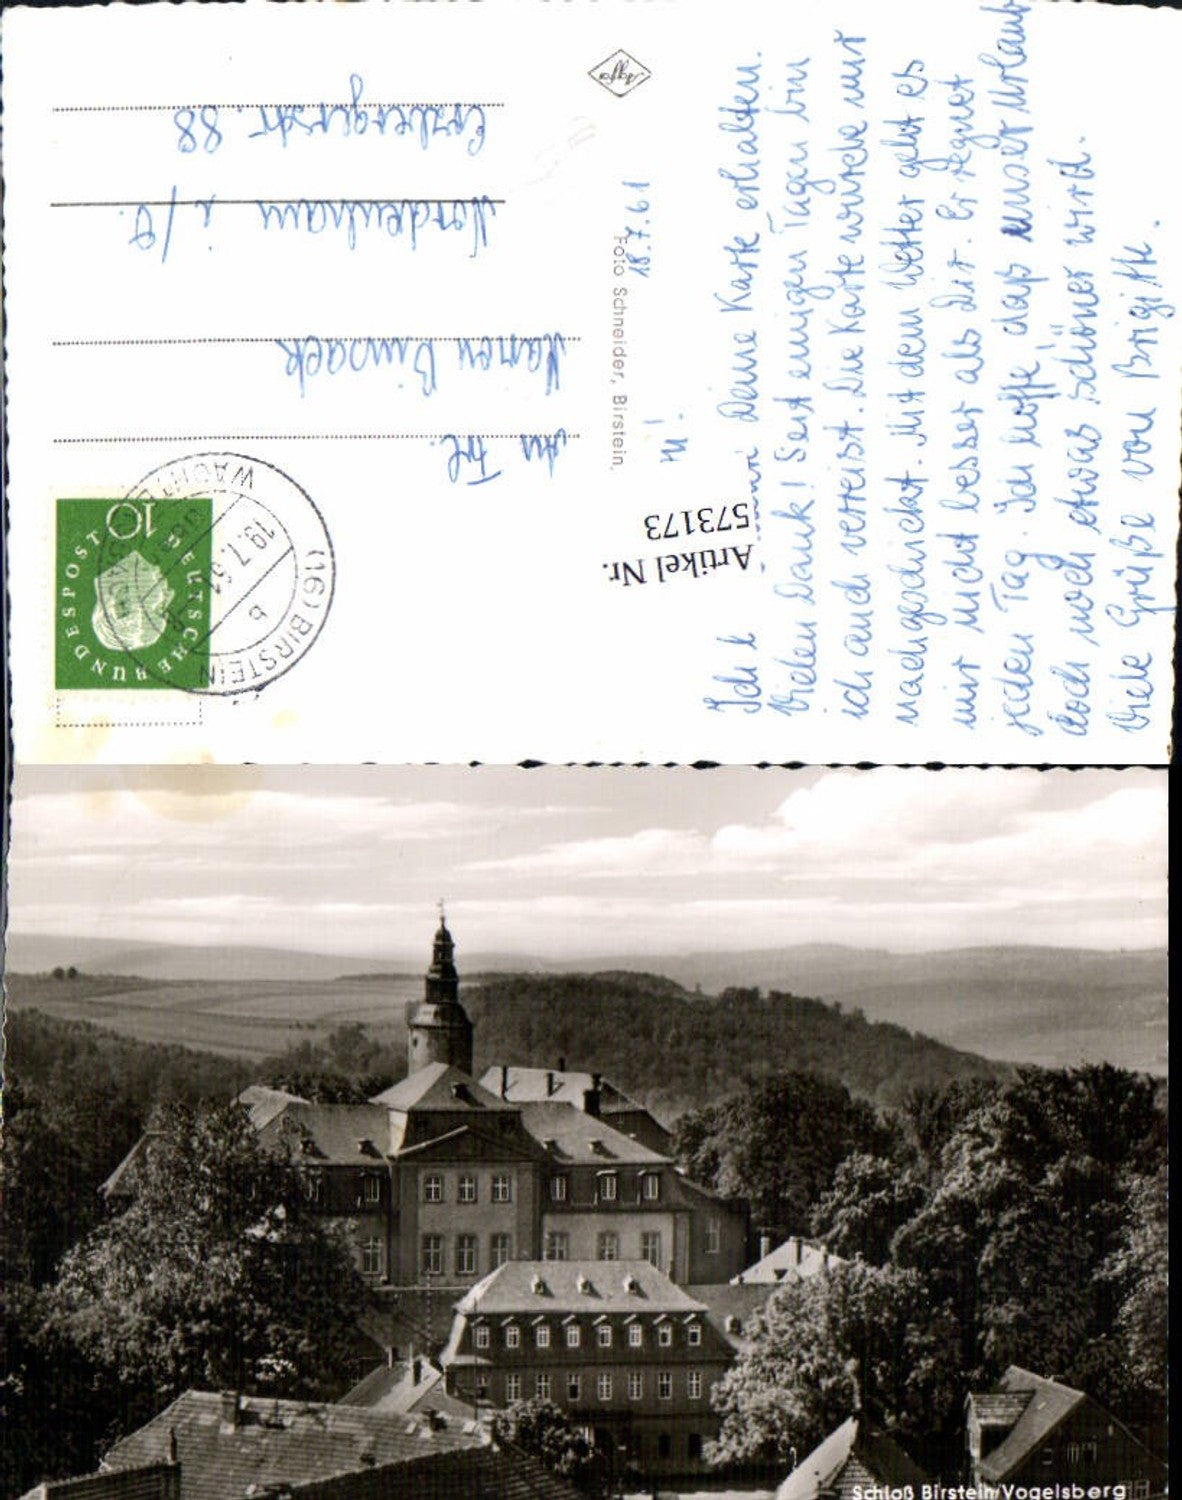 18.7.61
Deine Karte erhalten.
Vielen Dank! Seit einigen Tagen bin
ich auch verreist. Die Karte wurde mir
nachgeschickt. Mit dem Wetter geht es
mir nicht besser als Dir. Er regnet
jeden Tag. Ich hoffe, daß unser Urlaub
doch noch etwas schöner wird.
Viele Grüße von Brigitte.
Artikel Nr.
573173
Agfa
Foto Schneider, Birstein.
DEUTSCHE BUNDESPOST
10
(16) BIRSTEIN
19.7.61
b
An Frl.
Maren
Nordenham i/O.
Erzbergerstr. 88
Schloß Birstein/Vogelsberg